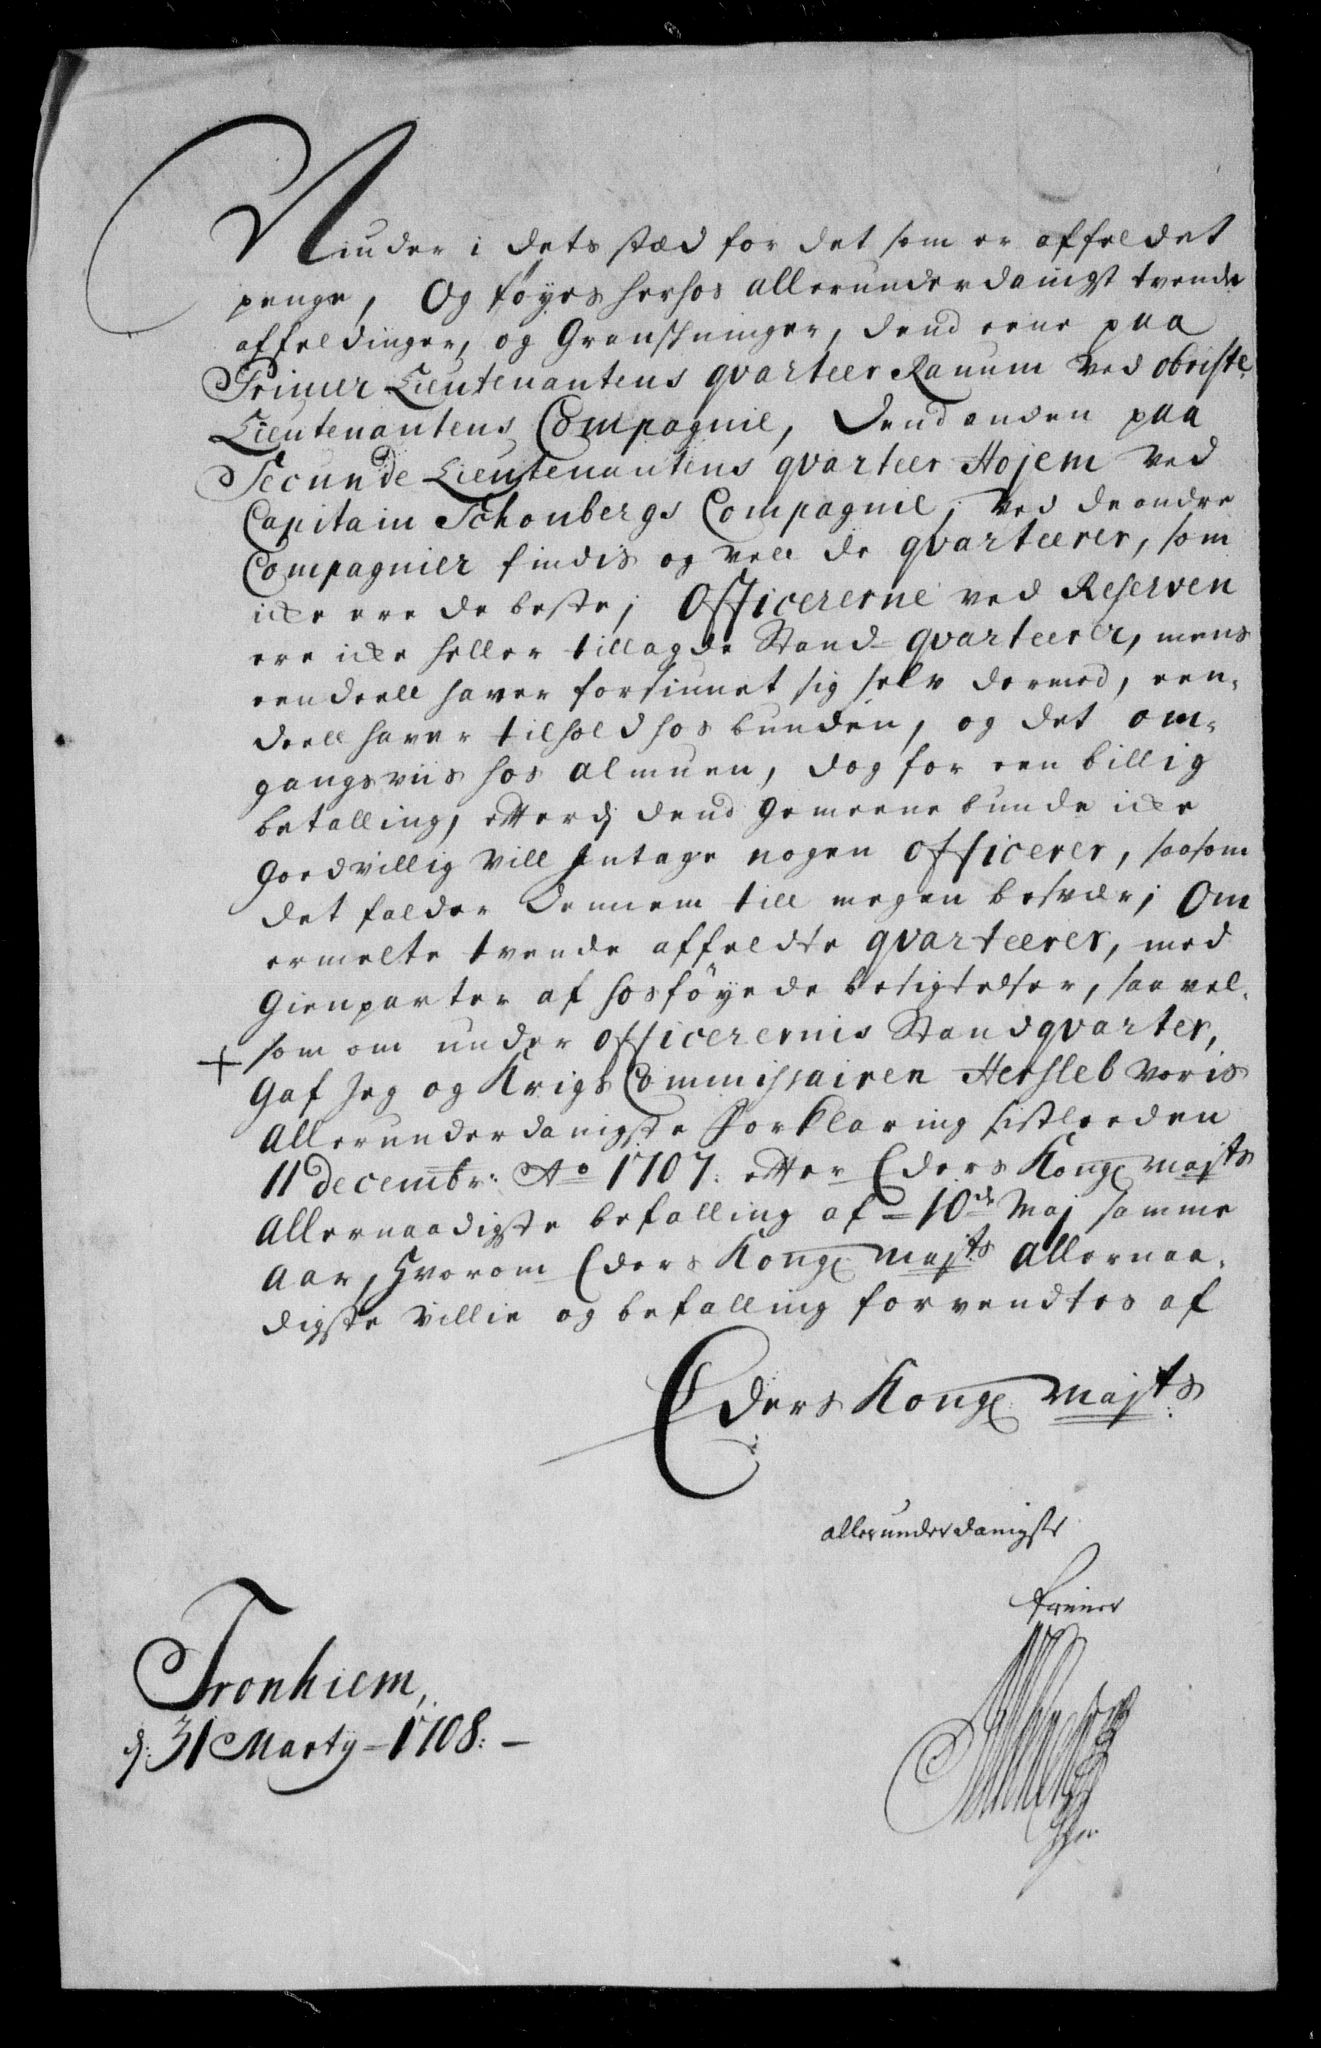 Niuder i dets stæd for det som er affeldet
penge, Og föyes herhos allerunderdanigst tvende
affeldinger, og Granskninger, dend eene paa
Primier Lieutenantens qvarteer Ranum ved obriste
Lieutenantens Compagnie, dend anden paa
Secunde Lieutenantens qvarteer Hojem ved
Capitain Schonbergs Compagnie; ved de andre
Compagnier findis og vell de qvarteerer, som
icke ere de beste; Officererne ved Reserven
ere icke heller tillagde Stand-qvarteerer, mens
eendeell haver forsiunet sig selv dermed, een-
deell haver tilhold hos bunden, og det om-
gangsviis hos almuen, dog for een billig
betalling, efterdj dend gemeene bunde icke
goedvillig vill Jntage nogen officerer, saasom
det falder dennem till megen besvær; Om
ermelte tvende affeldte qvarteerer, med
Gienparter af hosföyede besigtelser, saa vel-
+ som om under officerernis Standqvarter,
Gaf Jeg og Krigs Commissairen Hersleb voris
Allerunderdanigste Forklaring sistleeden
11 decembr: Ao 1707. efter Eders Kongl majts
Allernaadigste befalling af - 10de Maj samme
Aar, Hvorom Eders Kongl majts Allernaa-
digste villie og befalling forventes af
Eders Kongl Majts
allerunderdanigste
Tronhiem,
dj: 31 Marty - 1708: -